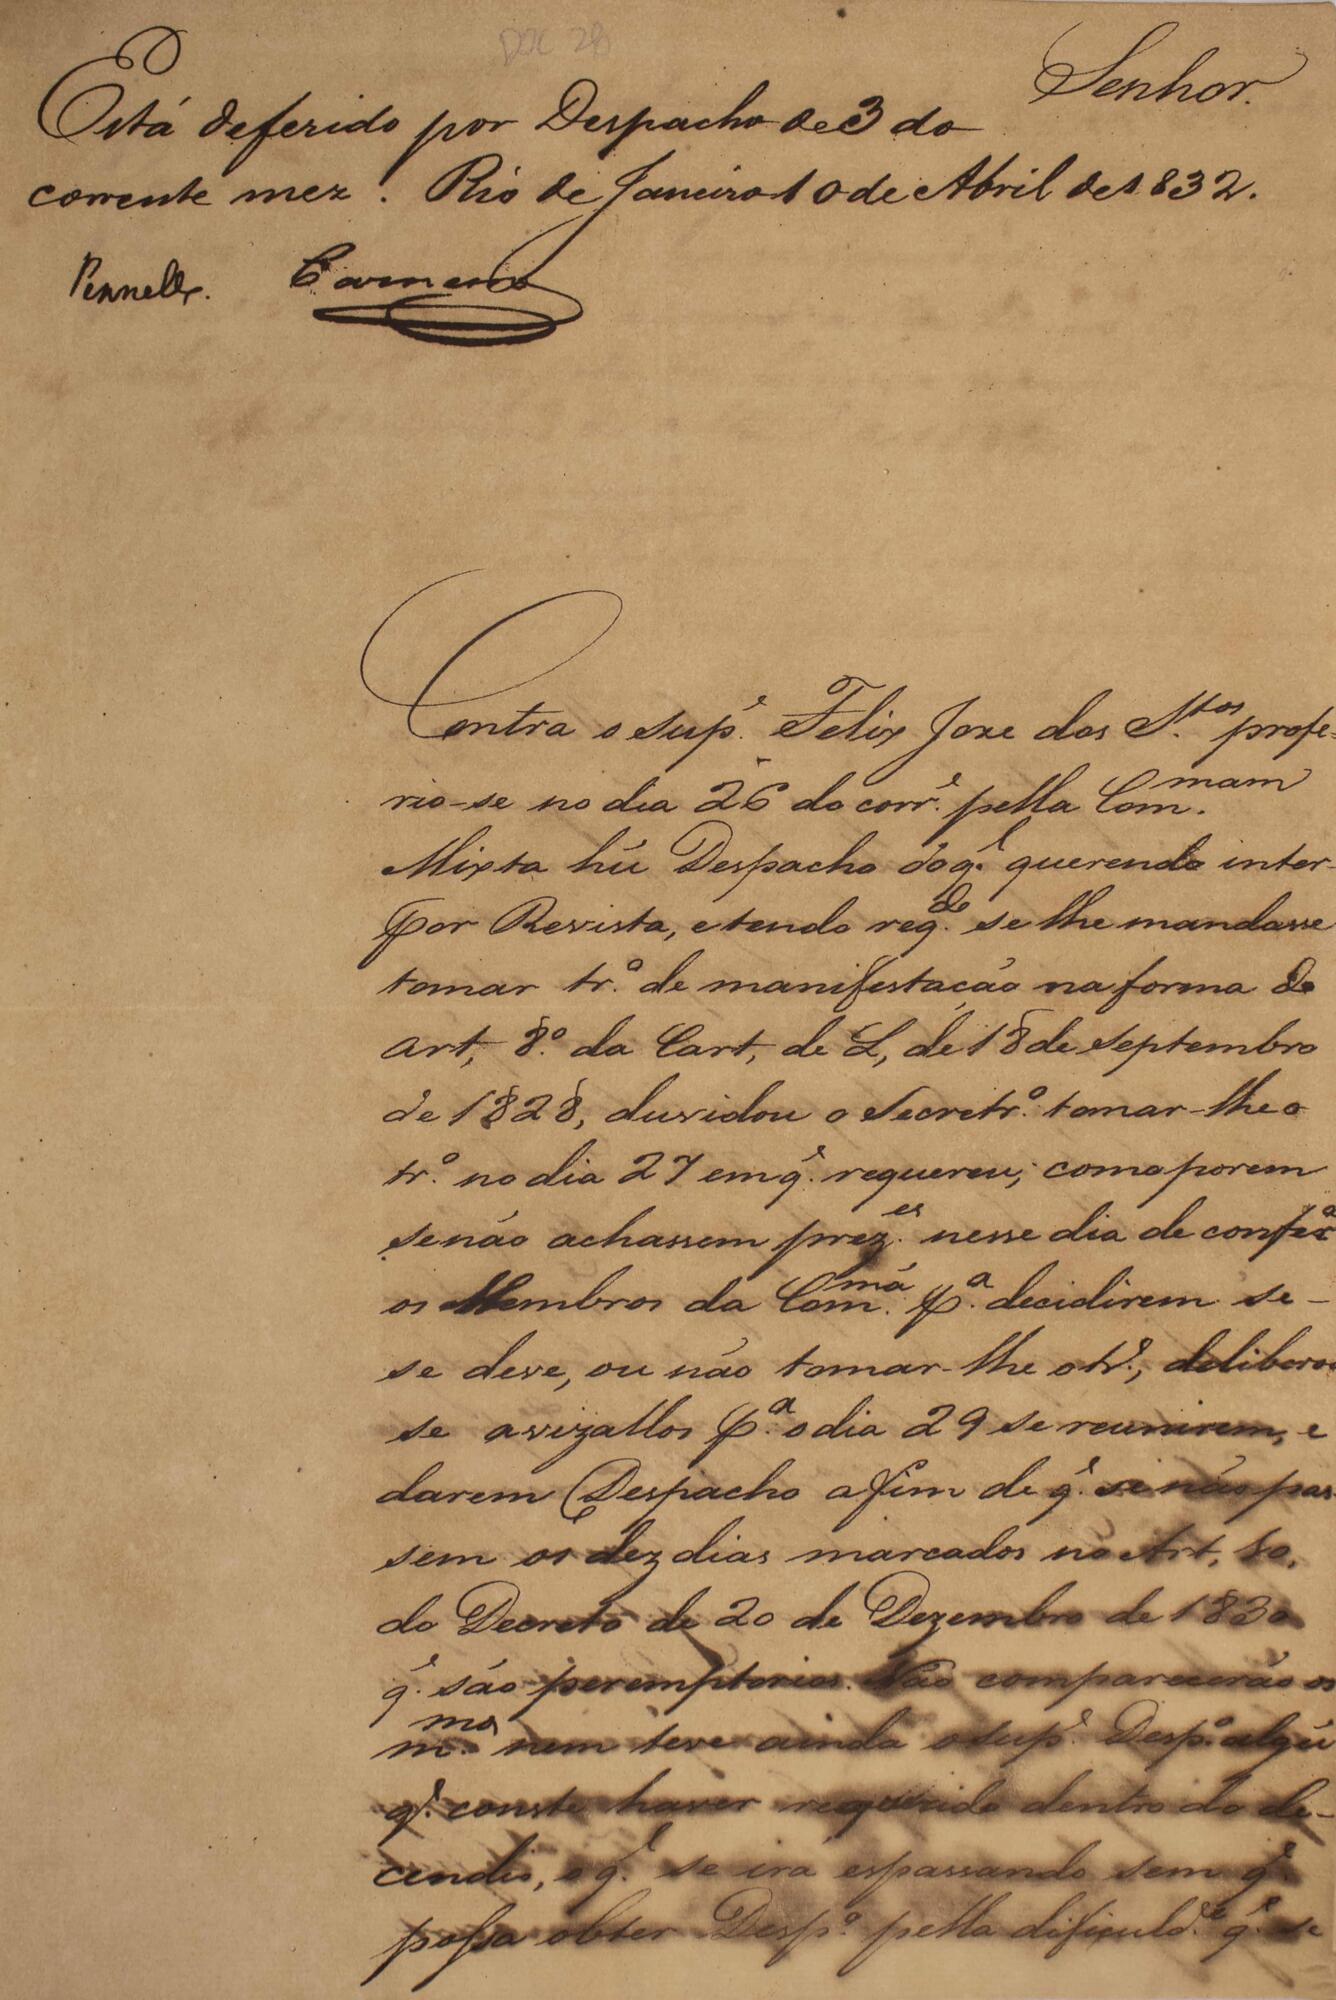 DOC 28
Senhor.
Está deferido por Despacho de 3 do
corrente mez. Rio de Janeiro 10 de Abril de 1832.
Carneiro
Contra o sup.e Felix Joze dos S.tos profe-
rio-se no dia 26 do corr.e pella Com.mam
Mixta hú Despacho do q.l querendo inter-
por Revista, e tendo req.do se lhe mandasse
tomar tr.o de manifestacáo na forma do
art, 8.o da Cart, de L, de 18 de septembro
de 1828, duvidou o Secretr.o tomar-lhe o
tr.o no dia 27 em q.e requereu; como porem
se náo achassem prez.es nesse dia de confer.a
os Membros da Com.má p.a decidirem se-
se deve, ou náo tomar-lhe o tr.o, deliberou
se avizallos p.a o dia 29 se reunirem, e
darem Despacho afim de q.e se náo pas-
sem os dez dias marcados no Art, 10,
do Decreto de 20 de Dezembro de 1830
q.e sáo peremptorios. Náo compareceráo os
m.mos nem teve ainda o sup.e Desp.o algú
q.e conste haver requerido dentro do de-
cendio, o q.l se irá espassando sem q.e
possa obter Desp.o pella dificuld.e q.e se